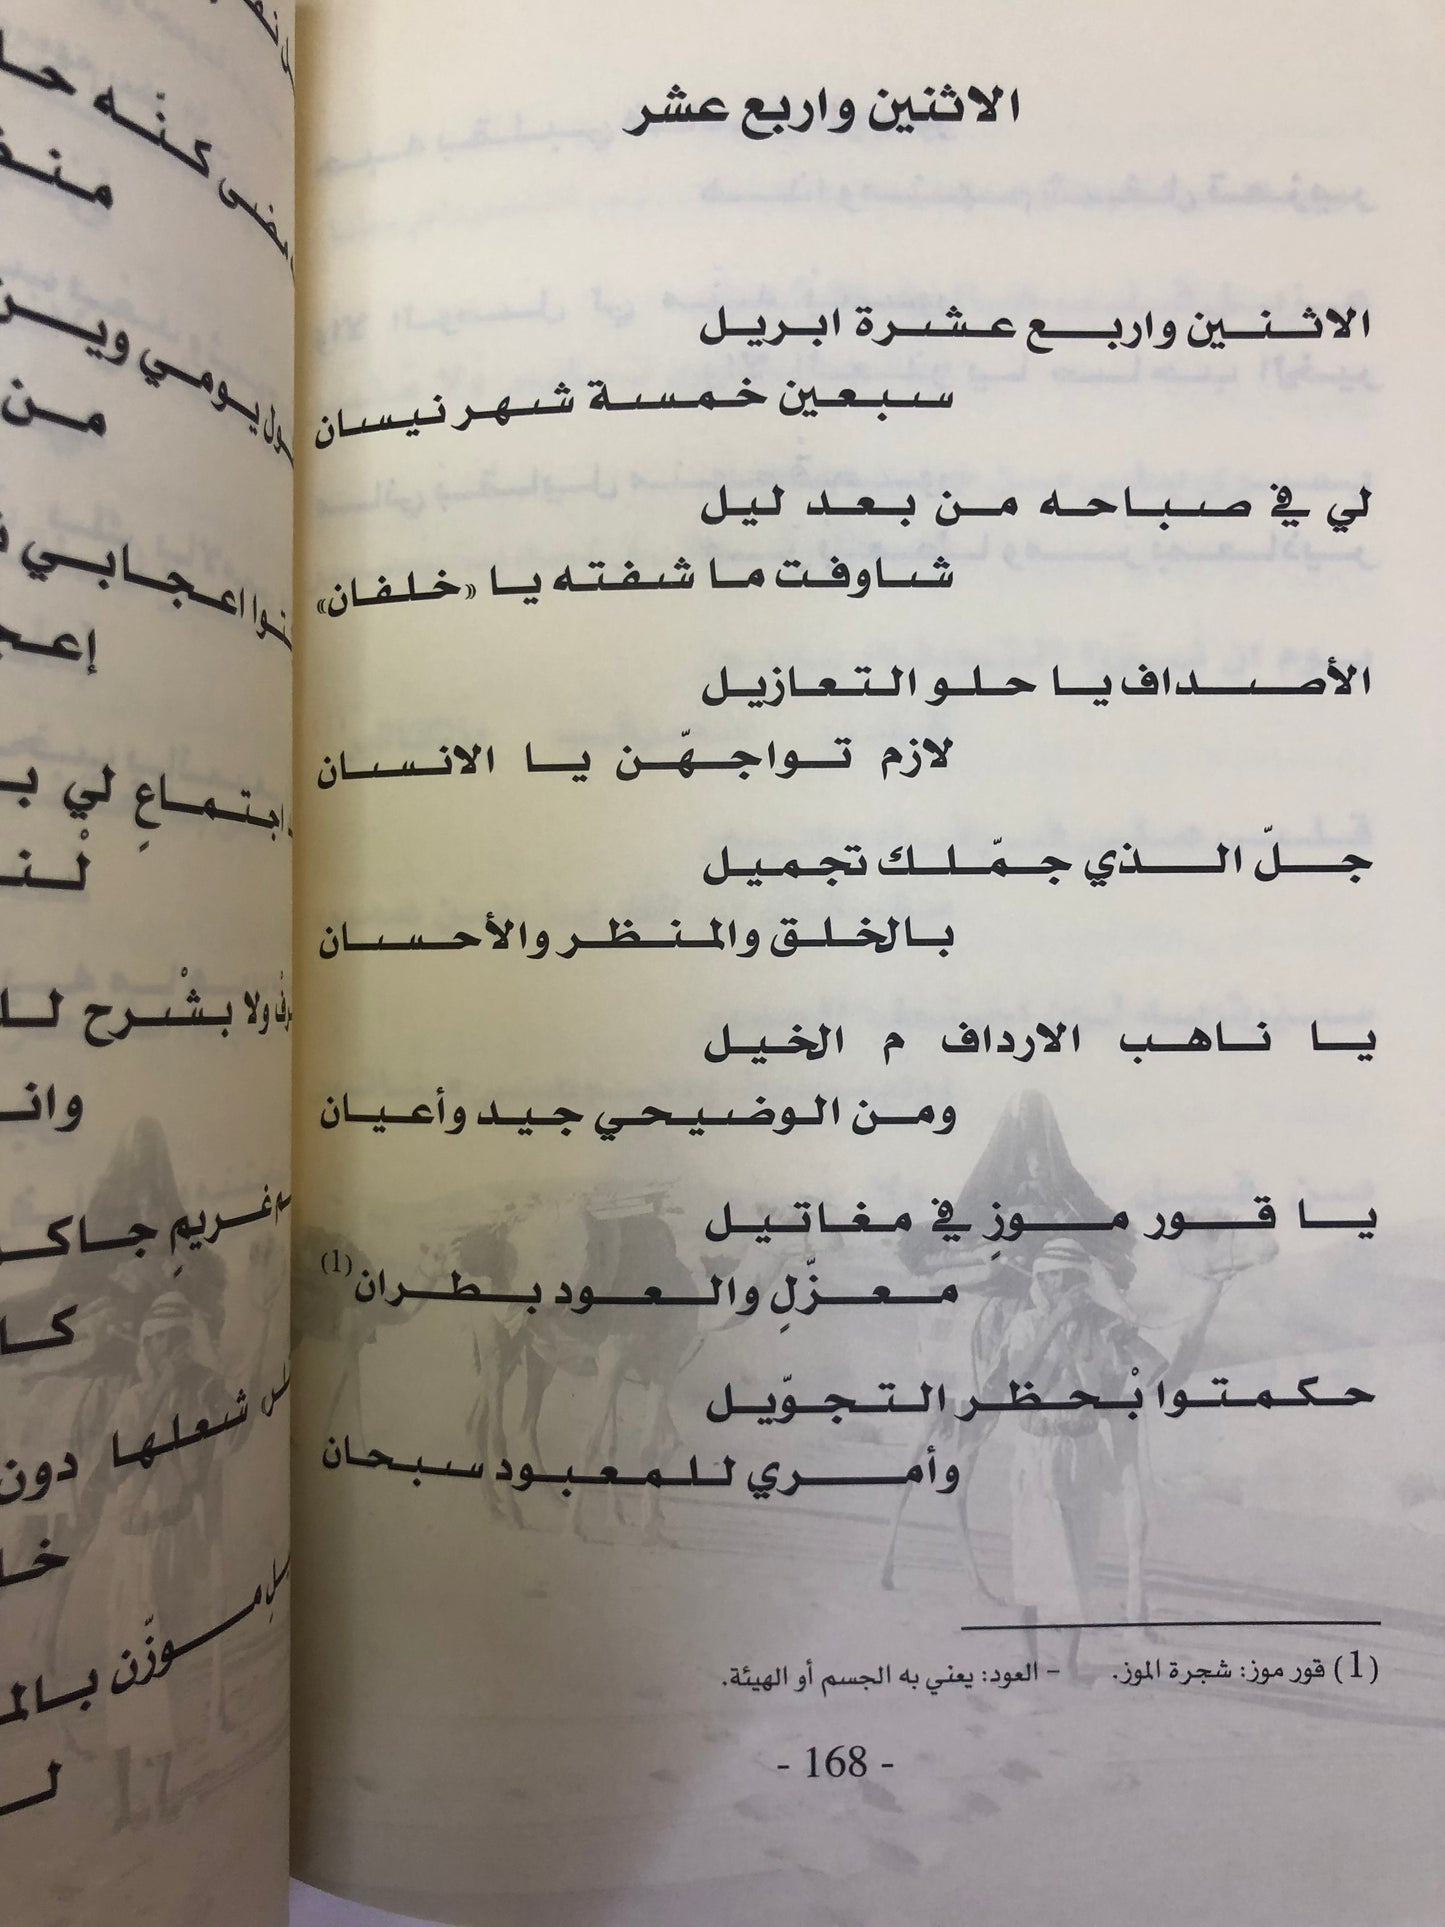 الاثنين واربع عشر
الاثنين واربع عشرة ابريل
سبعين خمسة شهر نيسان
لي في صباحه من بعد ليل
شاوفت ما شفته يا «خلفان»
الأصداف يا حلو التعازيل
لازم تواجهّن يا الانسان
جلّ الذي جمّلك تجميل
بالخلق والمنظر والأحسان
يا ناهب الارداف م الخيل
ومن الوضيحي جيد وأعيان
يا قور موزٍ في مغاتيل
معزّلِ والعود بطران(1)
حكمتوا بْحظر التجوّيل
وأمري للمعبود سبحان
(1) قور موز: شجرة الموز. – العود: يعني به الجسم أو الهيئة.
- 168 -
منـ
يومي ويـ
من
اعجابي
اجتماعٍ لي بـ
ولا بشْرح
غريمِ
شعلها دون
موزّن